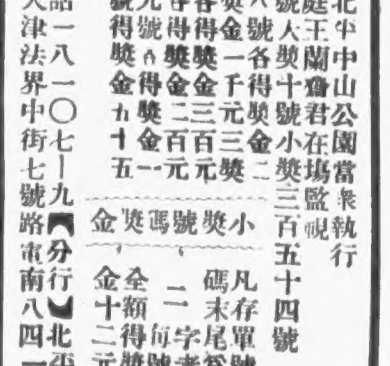 北平中山公園當衆執行
庭王蘭齋君在塲監視
號大奬十號小奬三百五十四號
號各得奬金二
得金一千元三奬
得奬金三百元
得奬金二百元
號各得奬金一
號得奬金九十五
小奬號碼奬金
凡存單號
碼末尾爲
字者
每號
全額得奬
金十二元
話一八一〇七—九【分行】北平
天津法界中街七號路電南八四一